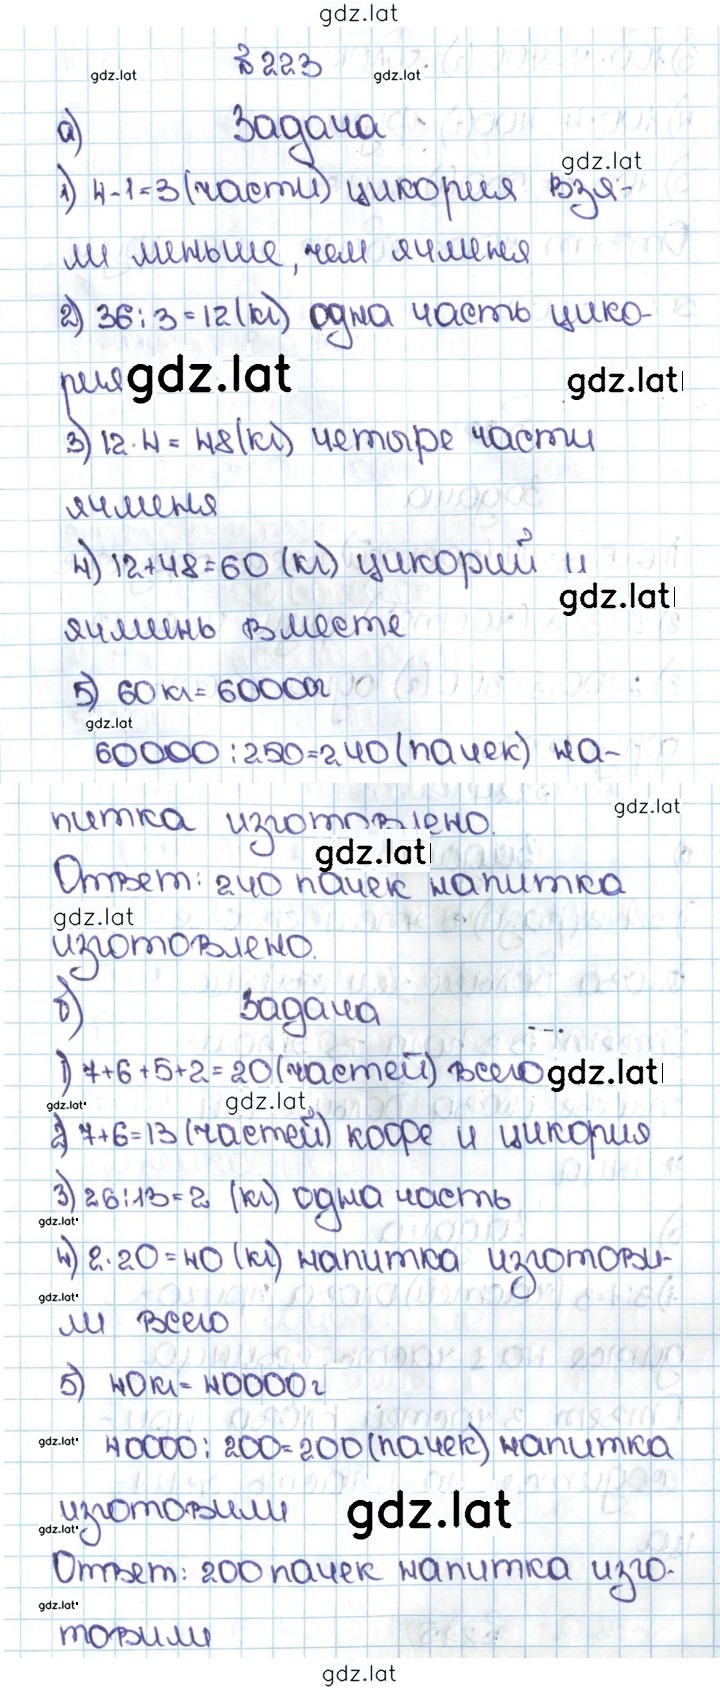 gdz.lat
№ 223
gdz.lat gdz.lat
а) Задача
gdz.lat
1) 4-1=3 (части) цикория взя-
ли меньше, чем ячменя
2) 36:3=12(кг) одна часть цико-
рия gdz.lat gdz.lat
3) 12·4=48(кг) четыре части
ячменя
4) 12+48=60 (кг) цикорий и
gdz.lat
ячмень вместе
5) 60кг=60000г
gdz.lat
60000:250=240(пачек) на-
gdz.lat
питка изготовлено.
gdz.lat
Ответ: 240 пачек напитка
gdz.lat
изготовлено.
б) Задача
1) 7+6+5+2=20(частей) всего gdz.lat
gdz.lat gdz.lat
2) 7+6=13 (частей) кофе и цикория
3) 26:13=2 (кг) одна часть
gdz.lat
4) 2·20=40 (кг) напитка изготови-
gdz.lat
ли всего
5) 40кг=40000г
gdz.lat 40000:200=200(пачек) напитка
изготовили gdz.lat
gdz.lat
Ответ: 200 пачек напитка изго-
gdz.lat
товили
gdz.lat